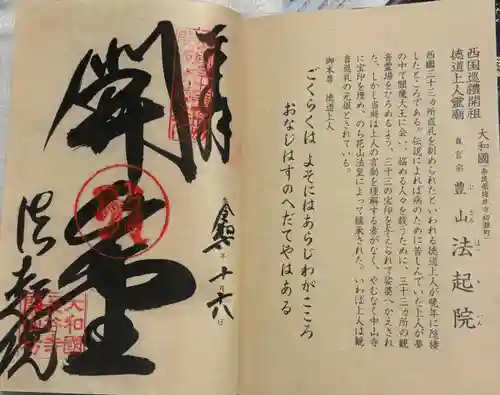 西国巡禮開祖
徳道上人霊廟
大和國 奈良県桜井市初瀬町
真言宗 豊山 法起院
ぶさん ほうきいん
西國三十三カ所巡礼を創められたといわれる徳道上人が晩年に隠棲
したところである。伝説によれば病のために苦しんでいた上人が夢
の中で閻魔大王に会い、悩める人々を救うために、三十三カ所の観
音霊場をひろめるよう、三十三の宝印を与えられて娑婆へかえされ
た。しかし当時は上人の言動を理解する者がなく、やむなく中山寺
に宝印を埋め、のち花山法皇によって継承された。いわば上人は観
音巡礼の元祖とされている。
御本尊 徳道上人
ごくらくは よそにはあらじわがこころ
おなじはすのへだてやはある
奉拝
年 十月 十六日
開山堂
法起院
大和國
長谷寺
開山坊